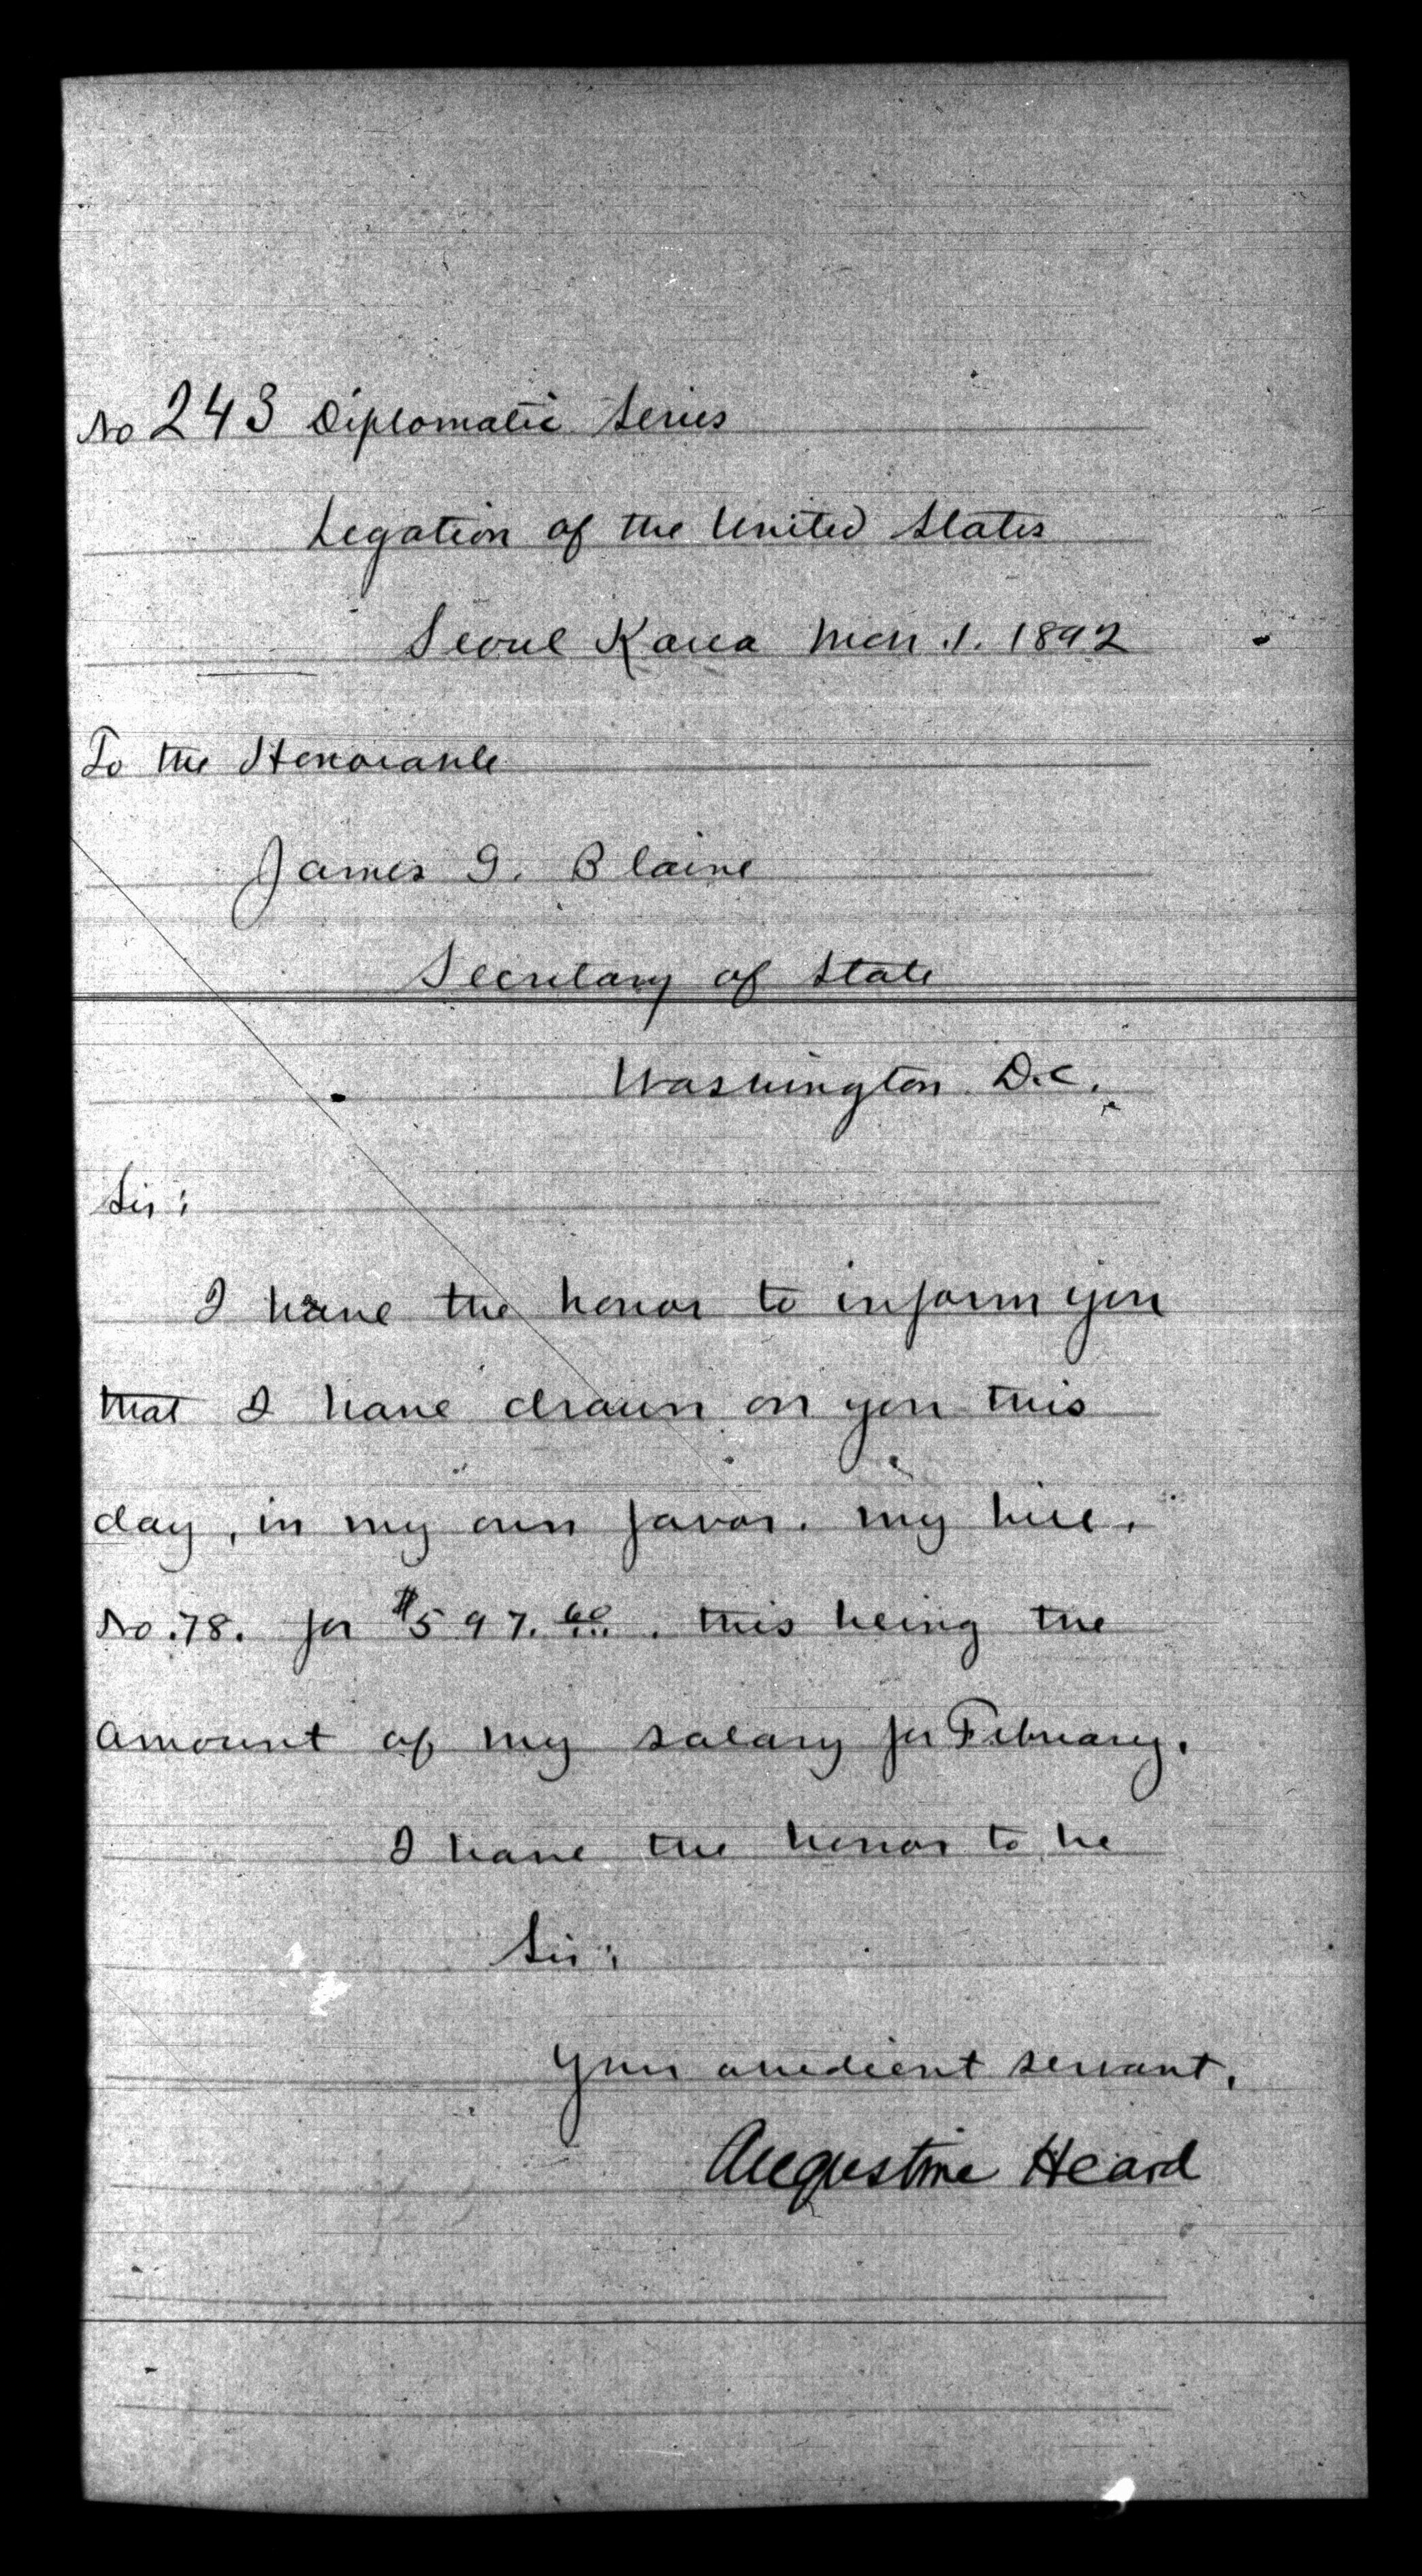 No 243 Diplomatic Series
Legation of the United States
Seoul Korea Mch. 1. 1892
To the Honorable
James G. Blaine
Secretary of State
Washington D.C.
Sir:
I have the honor to inform you
that I have drawn on you this
day, in my own favor. my bill.
No. 78. for $597.60. this being the
amount of my salary for February.
I have the honor to be
Sir:
Your obedient servant,
Augustine Heard